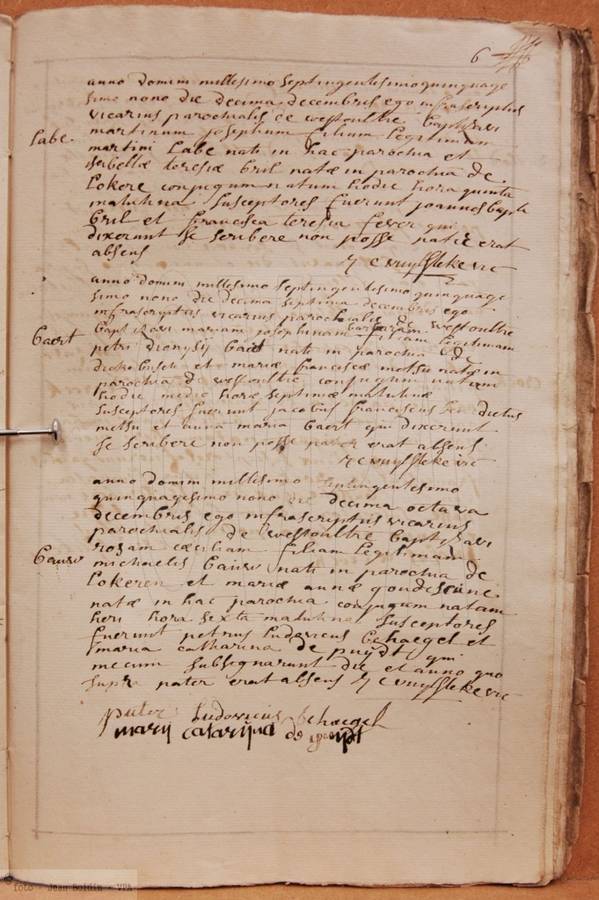 6
anno domini millesimo septingentesimo quinquage
simo nono die decima decembris ego infrascriptus
vicarius parochialis de westoultre baptisavi
Labe
martinum josephum filium legitimum
martini Labe nati in hac parochia et
isabellæ teresiæ bril natæ in parochia de
Lokere conjugum natum hodie hora quinta
matutina susceptores fuerunt joannes bapta
bril et francisca teresia fever qui
dixerunt se scribere non posse pater erat
absens
anno domini millesimo septingentesimo quinquage
simo nono die decima septima decembris ego
infrascriptus vicarius parochialis de westoultre
baptisavi mariam josephinam barbaram filiam legitimam
Baert
petri dionysij baert nati in parochia de
et mariæ franciscæ natæ in
parochia d westoultre conjugum natam
hodie media horæ septimæ matutinæ
susceptores fuerunt jacobus franciscus benedictus
et anna maria baert qui dixerunt
se scribere non posse pater erat absens
anno domini millesimo septingentesimo
quinquagesimo nono die decima octava
decembris ego infrascriptus vicarius
parochialis de westoultre baptisavi
rosam cæciliam filiam legitimam
michaelis nati in parochia de
Lokeren et mariæ annæ
natæ in hac parochia conjugum natam
heri hora sexta matutina susceptores
fuerunt petrus ludovicus behaegel et
maria catharina de puydt qui
mecum subsignarunt die et anno quo
supra pater erat absens
ludovicus behaegel
marij catarijna de
foto - Jean Boidin - VVA